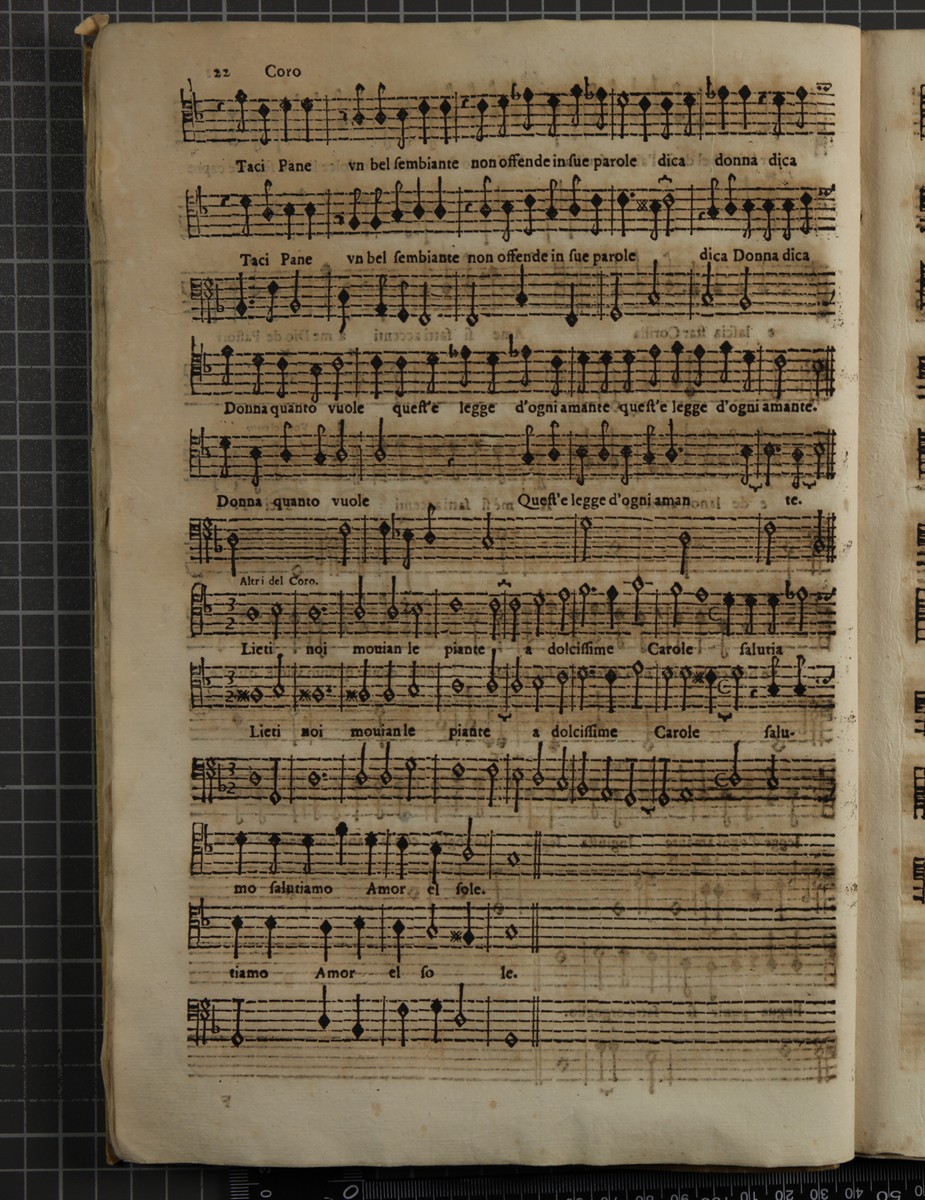 22 Coro
Taci Pane vn bel ſembiante non offende in ſue parole dica donna dica
Taci Pane vn bel ſembiante non offende in ſue parole dica Donna dica
Donna quanto vuole queſt'e legge d'ogni amante queſt'e legge d'ogni amante.
Donna quanto vuole Queſt'e legge d'ogni aman te.
Altri del Coro.
Lieti noi mouian le piante a dolciſſime Carole ſalutia
Lieti noi mouian le piante a dolciſſime Carole ſalu-
mo ſalutiamo Amor el ſole.
tiamo Amor el ſo le.